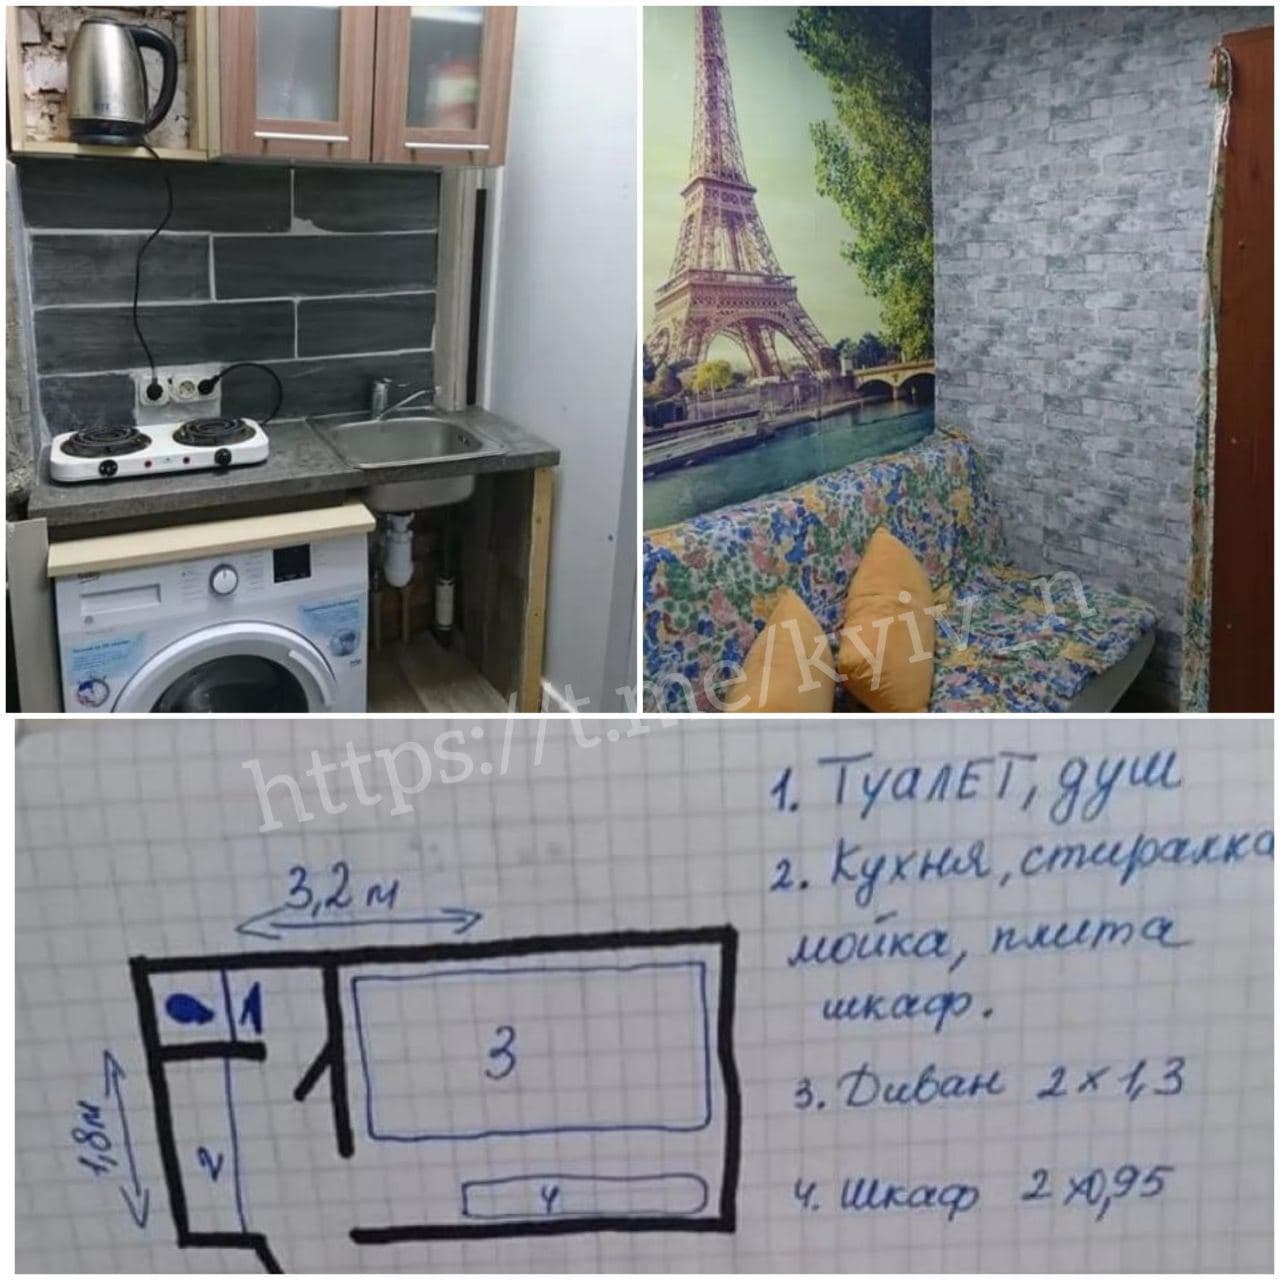 https://t.me/kyiv_n
1. Туалет, душ
2. Кухня, стиралка
мойка, плита
шкаф.
3. Диван 2×1,3
4. Шкаф 2×0,95
3,2 м
1
3
1,8м
2
4